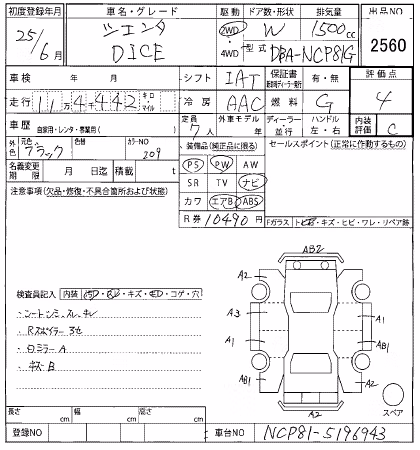 初度登録年月 車名・グレード 駆動 ドア数・形状 排気量 出品NO
25年/6月 シエンタ 2WD W 1500cc 2560
DICE 4WD 型式 DBA-NCP81G
車検 年 月 シフト IAT 保証書 有・無 評価点
走行 11万4千442 キロ マイル 冷房 AAC 燃料 G 4
車歴 自家用・レンタ・事業用( ) 定員 7人 外車モデル 年 ディーラー 並行 ハンドル 左・右 内装評価 C
外色 元色 ブラック 色替 カラーNO 209 装備品(純正品に限る) セールスポイント(正常に作動するもの)
名義変更期限 月 日迄 積載 t PS PW AW
注意事項(欠品・修復・不具合箇所および状態) SR TV ナビ
カワ エアB ABS
R券 10490円 Fガラス トビ・キズ・ヒビ・ワレ・リペア跡
AB2
A2 A2
検査員記入 内装 汚・スレ・キズ・・コゲ・穴
シートシミ、スレ、キレ A3 A1
Rスポイラー
ミラーA A1 AB1
キズB
AB1 A2
A2 スペア
長さ cm 幅 cm 高さ cm
登録NO 車台NO NCP81-5196943